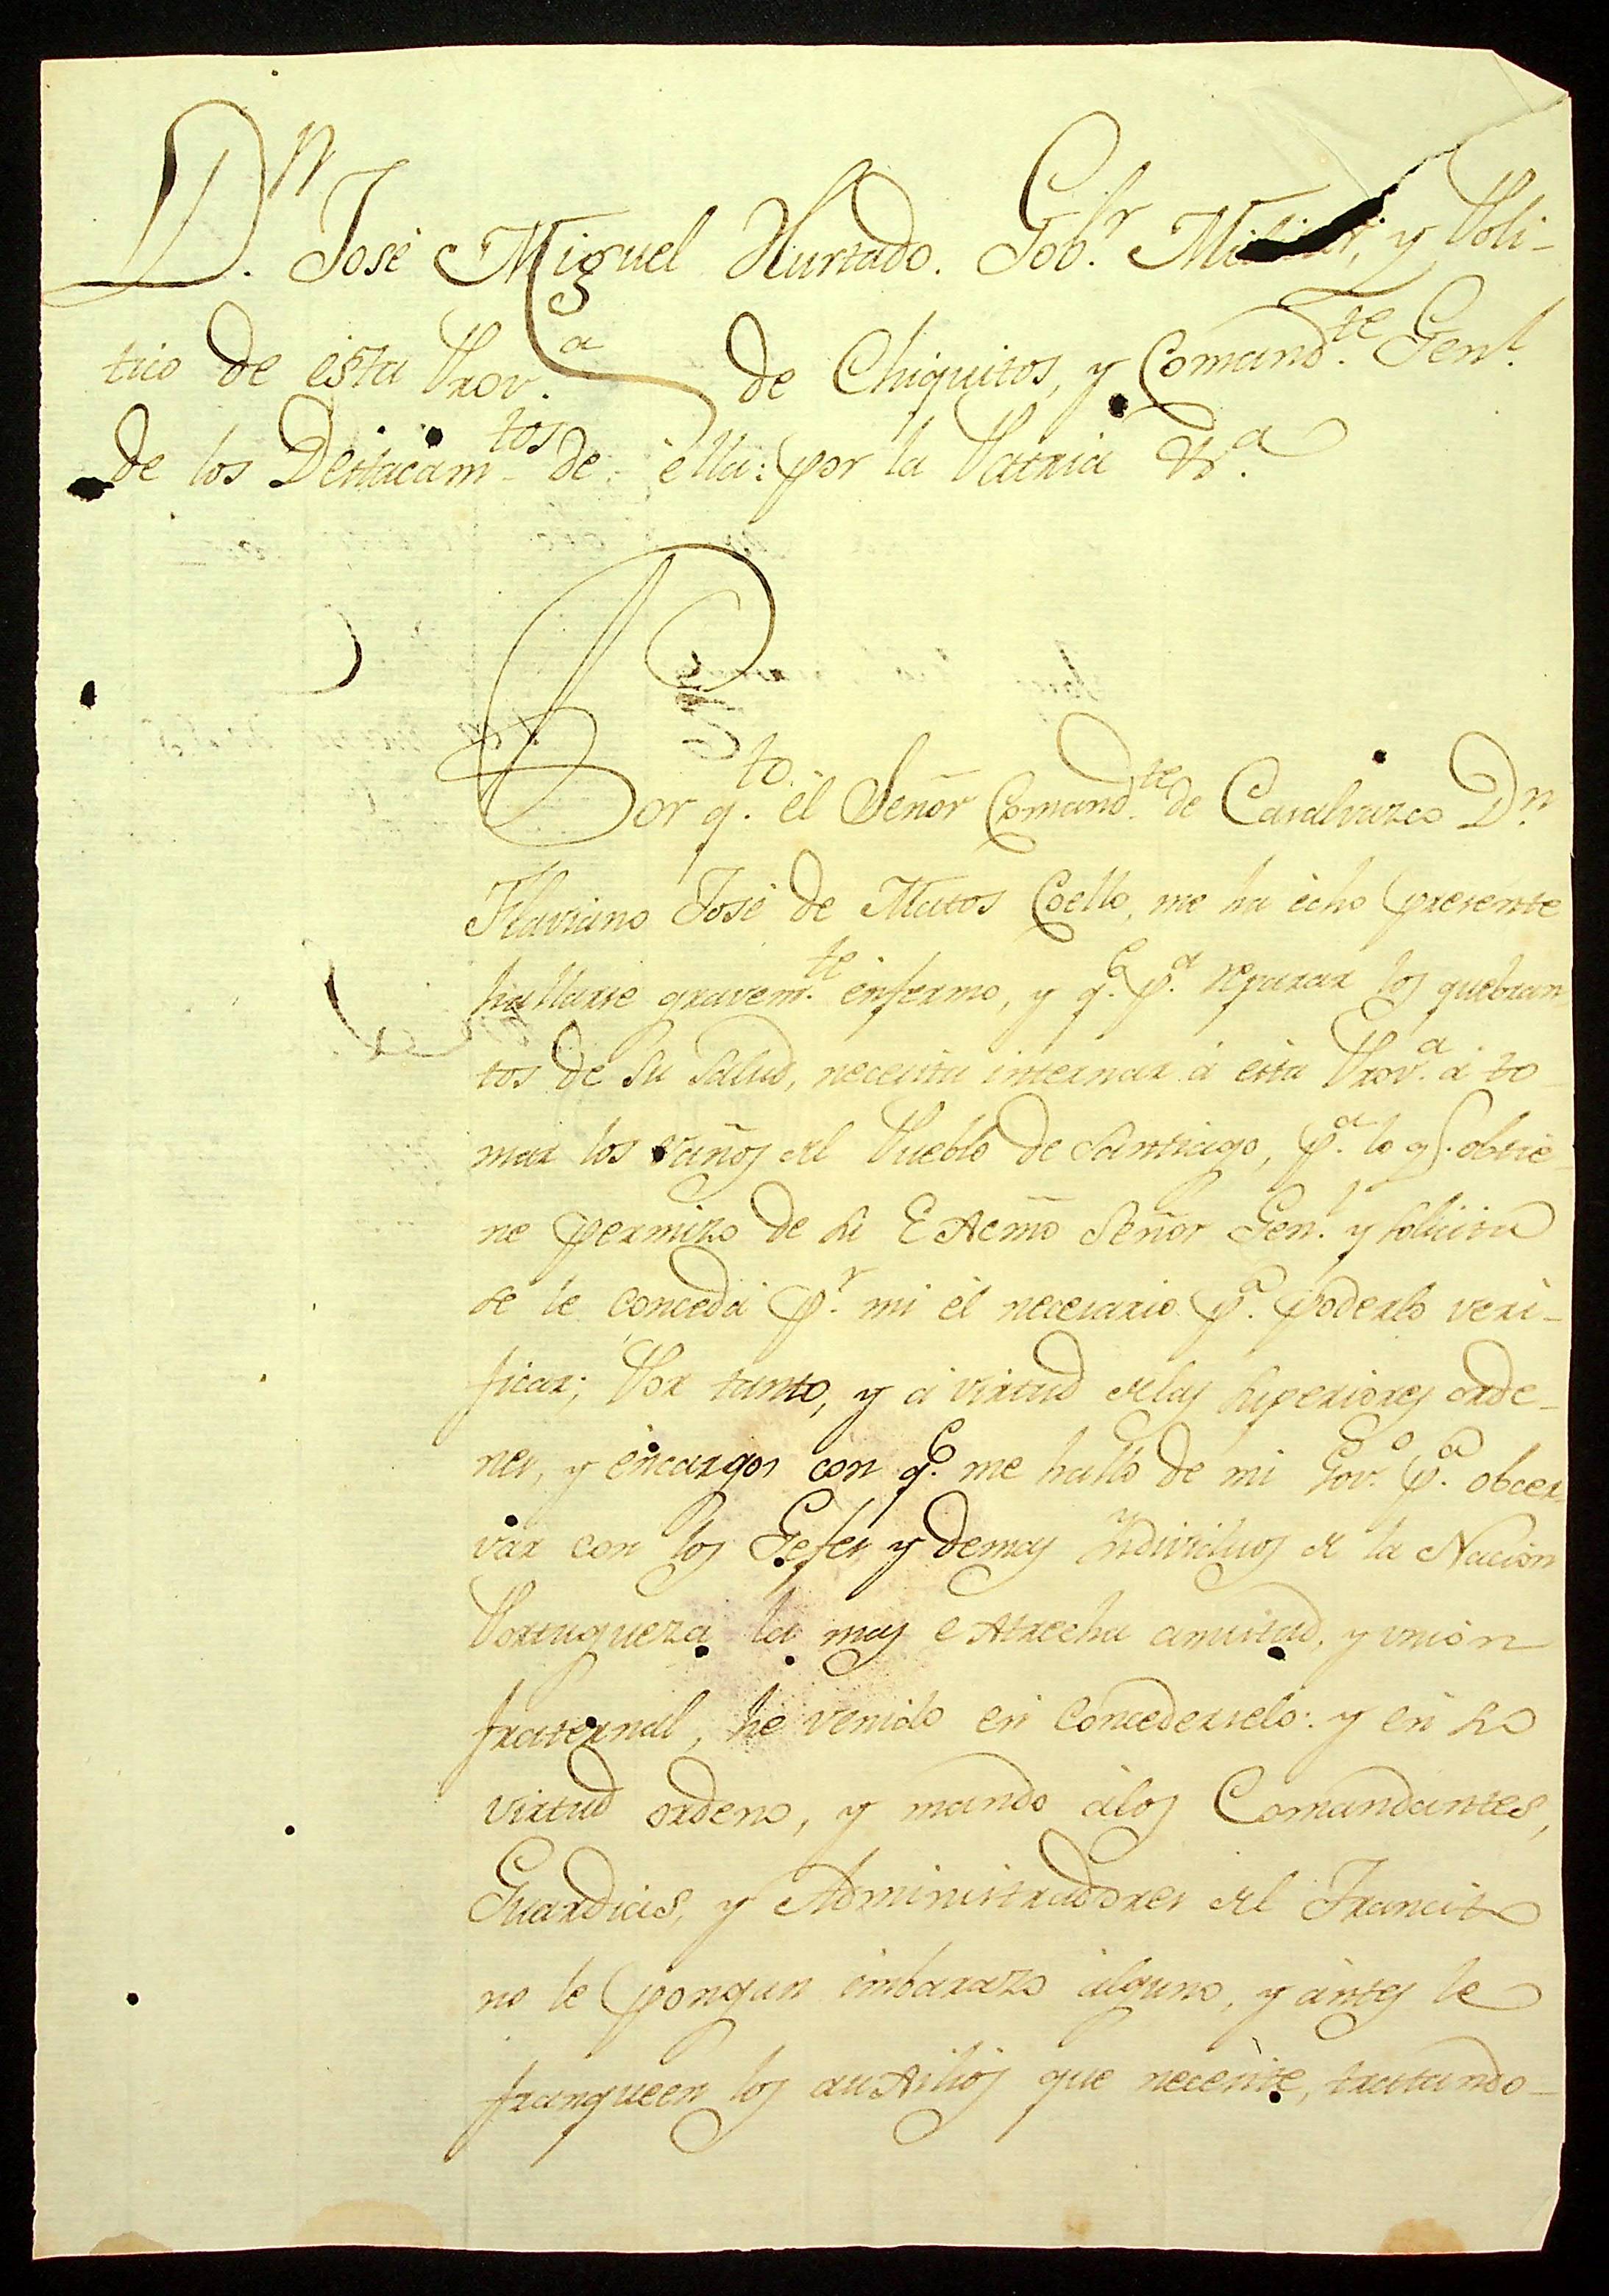 Dn. José Miguel Hurtado. Gobr. Militar, y Poli-
tico de esta Prova. de Chiquitos, y Comandte. Genl.
de los Destacamtos de ella: por la Patria &a.
Por qto. el Señor Comandte. de Casalvazco Dn.
Flaviano José de Matos Coello, me ha echo presente
hallarse gravemte. enfermo, y qe. pa. reparar los quebran
tos de su salud, necesita internar á esta Prova. á to
mar los vaños del Pueblo de Santiago, pa. lo q. obtie-
ne permizo de su Exmo Señor Genl. y solicita
se le conceda pr. mi el necesario pa. poderlo veri-
ficar; Por tanto, y a virtud delas superiores orde-
nes, y encargos con qe. me hallo de mi Govo. pa. obcer
var con los Gefes y demas Yndividuos de la Nacion
Portugueza la mas extrecha amistad, y union
fraternal, he venido en concederselo: y en su
virtud ordeno, y mando álos Comandantes,
Guardias, y Administradores del Trancito
no le pongan embarazo alguno, y antes le
franqueen los auxilios que necesite, tratando-